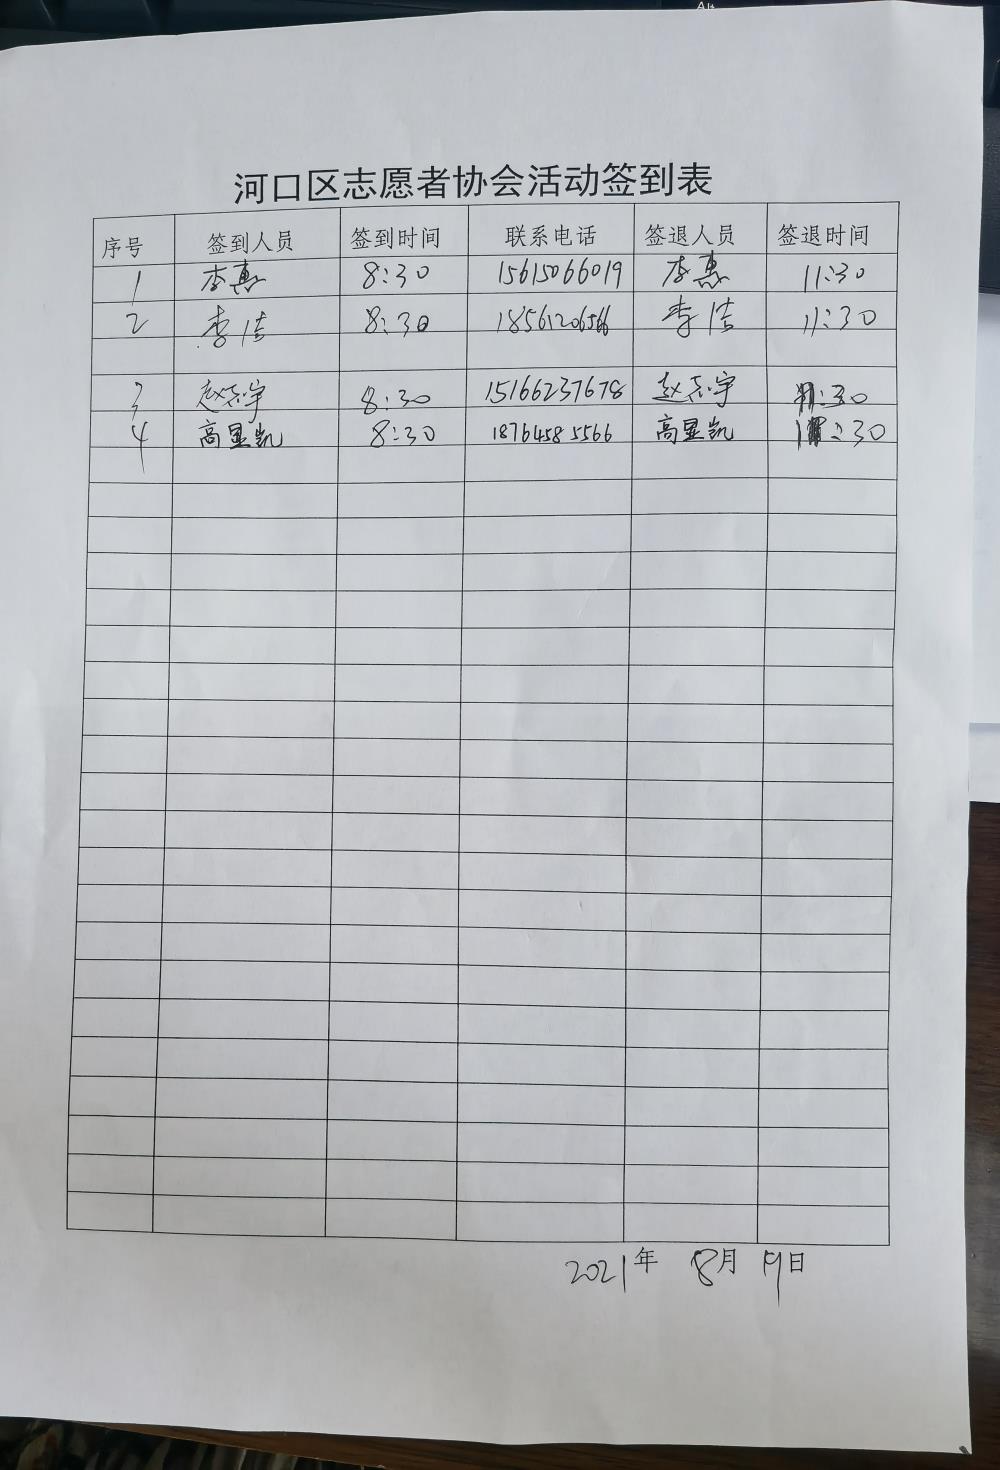 Alt
河口区志愿者协会活动签到表
序号 签到人员 签到时间 联系电话 签退人员 签退时间
1 李惠 8:30 15615066019 李惠 11:30
2 李洁 8:30 18561206566 李洁 11:30
3 赵志宇 8:30 15166237678 赵志宇 11:30
4 高显凯 8:30 18764585566 高显凯 11:30
2021年 8月 19日